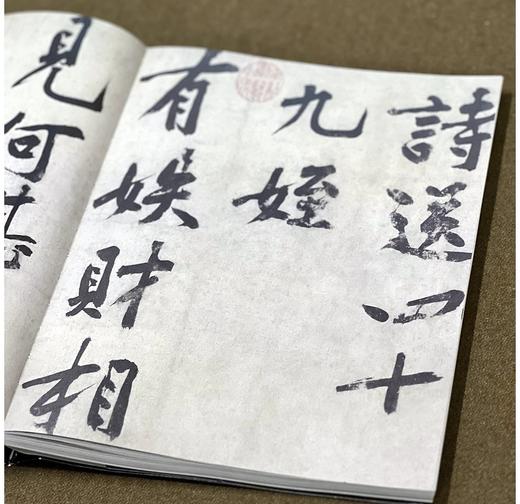 詩送四十
九姪
有娛財相
見何